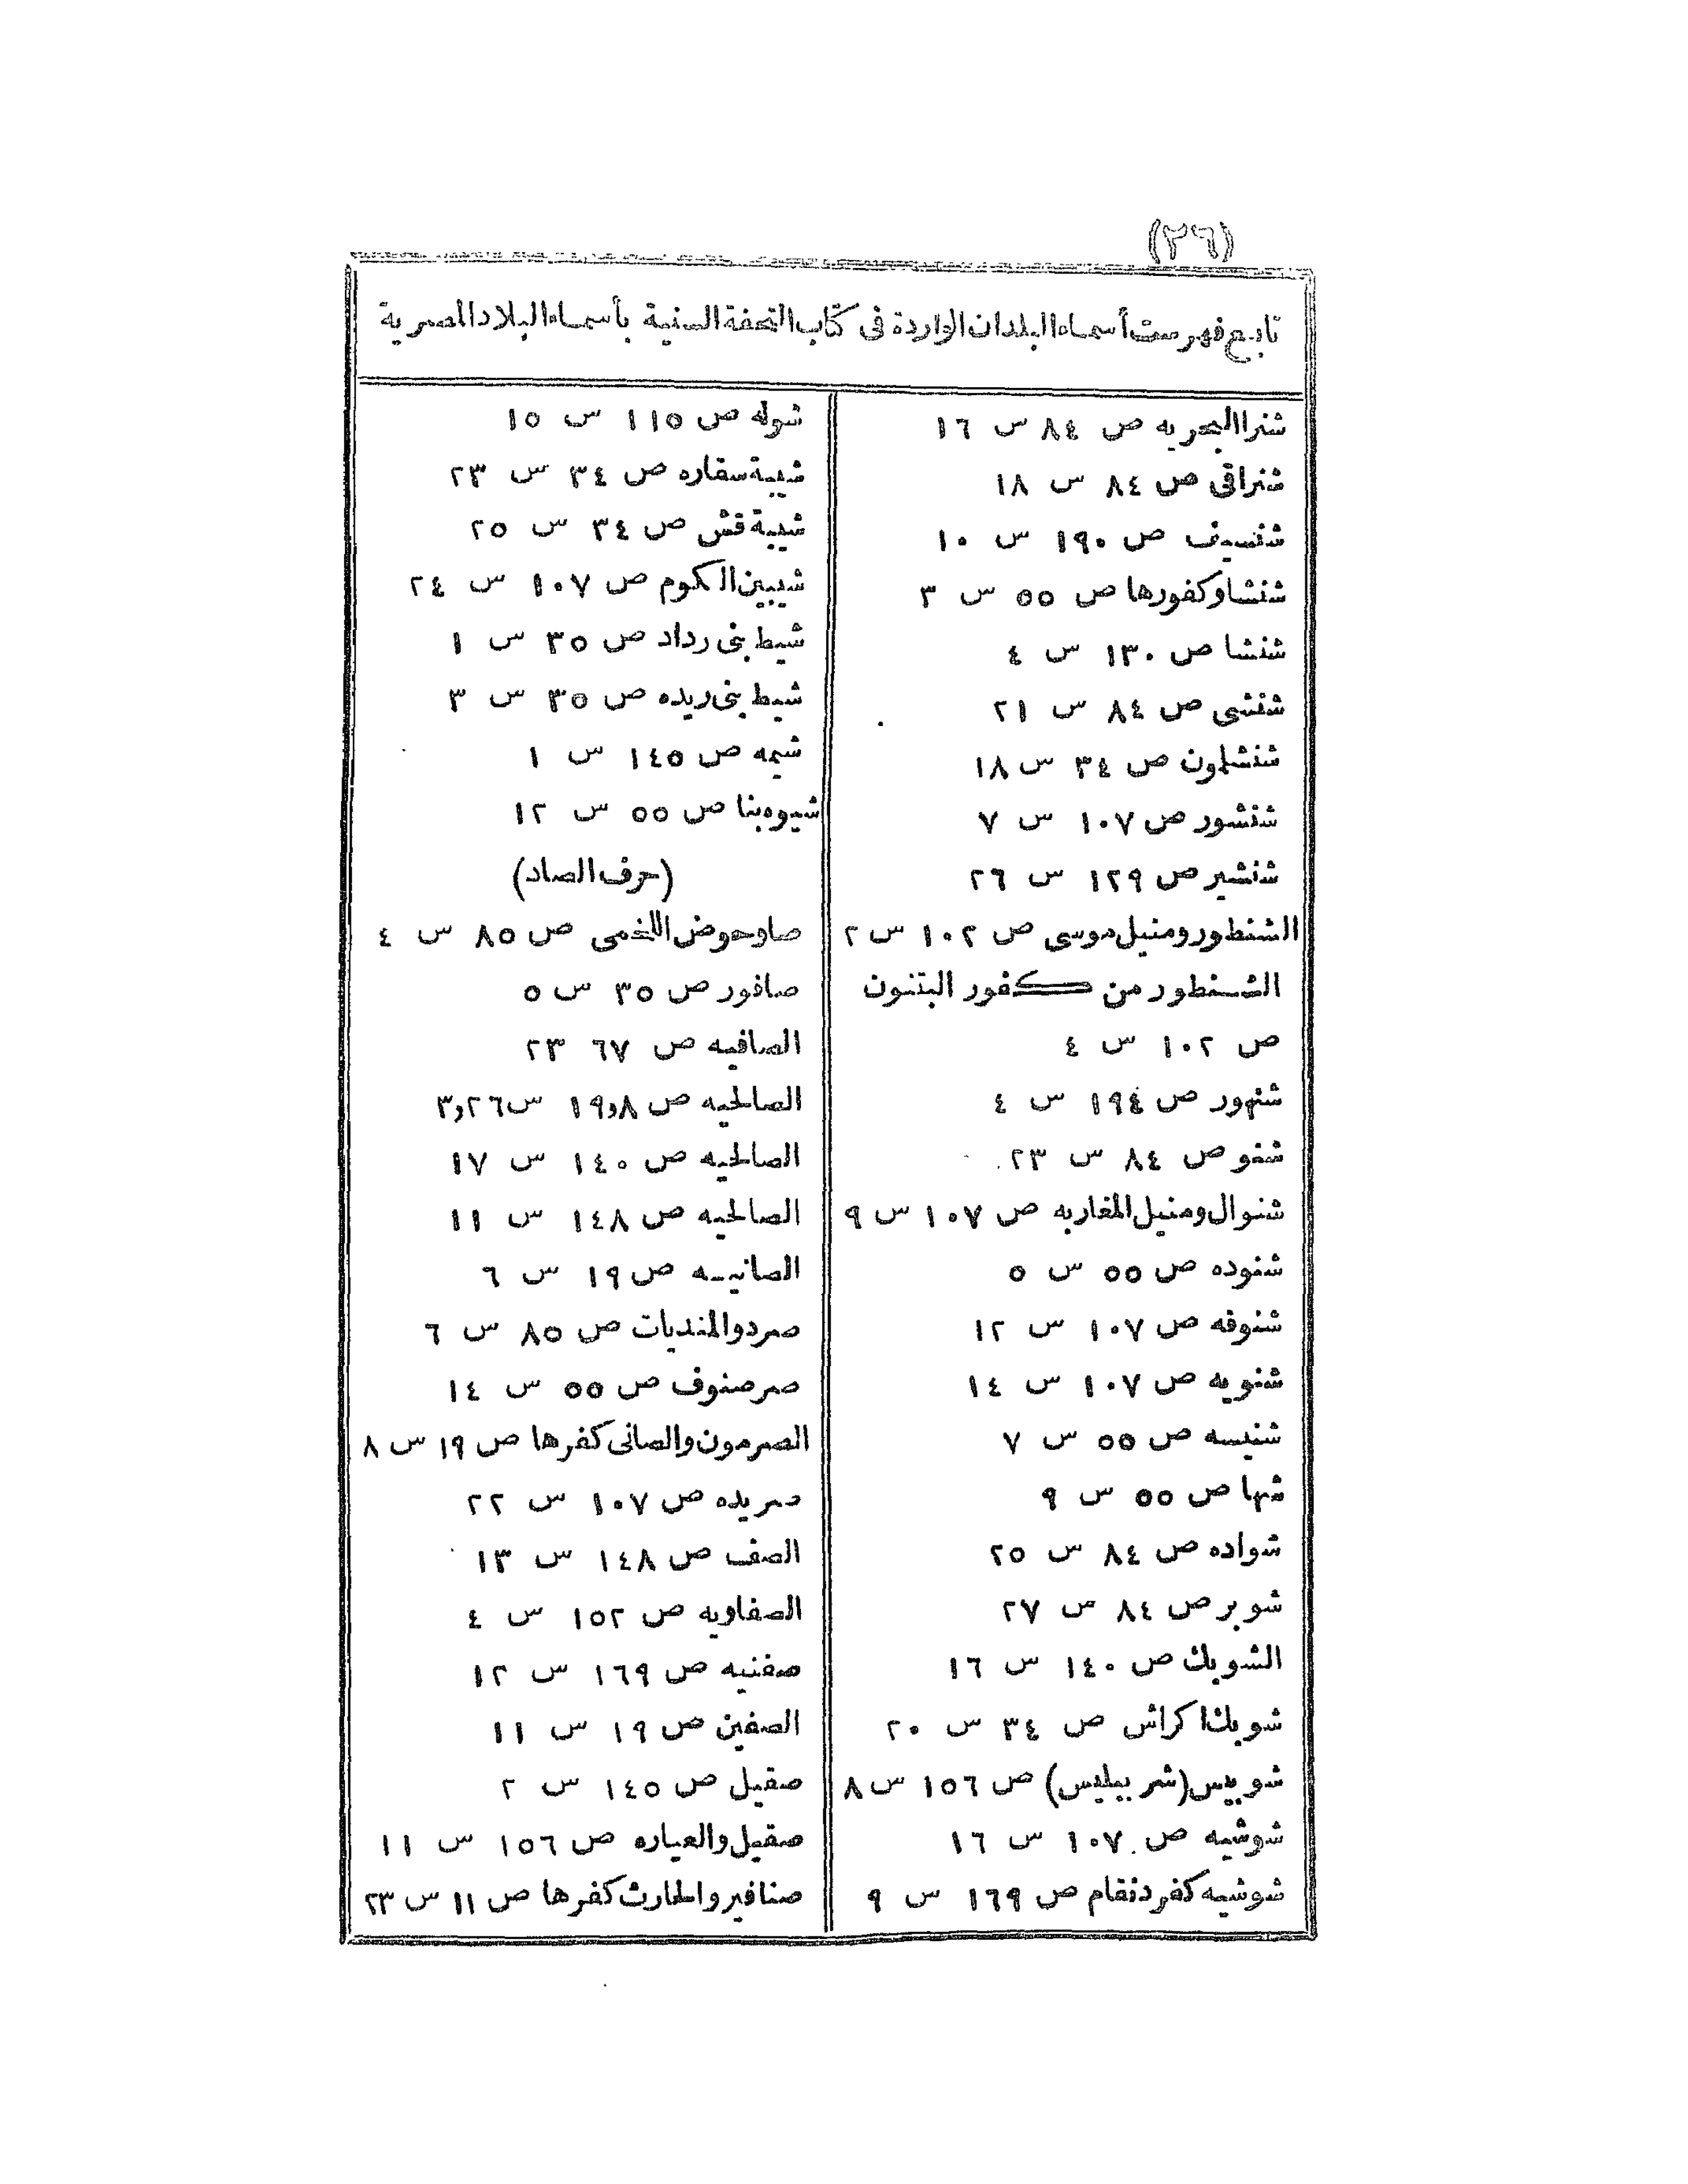 (٢٦)
تابع فهرست أسماء البلدان الواردة فى كتاب التحفة السنية بأسماء البلاد المصرية
شنرا البحريه ص ٨٤ س ١٦
شنراقى ص ٨٤ س ١٨
شنسيف ص ١٩٠ س ١٠
شنشا وكفورها ص ٥٥ س ٣
شنشا ص ١٣٠ س ٤
شنشى ص ٨٤ س ٢١
شنشلمون ص ٣٤ س ١٨
شنشور ص ١٠٧ س ٧
شنشير ص ١٢٩ س ٢٦
الشنطور ومنيل موسى ص ١٠٢ س ٢
الشنطور من كفور البتنون
ص ١٠٢ س ٤
شنهور ص ١٩٤ س ٤
شنو ص ٨٤ س ٢٣
شنوال ومنيل المغاربه ص ١٠٧ س ٩
شنوده ص ٥٥ س ٥
شنوفه ص ١٠٧ س ١٢
شنويه ص ١٠٧ س ١٤
شنيسه ص ٥٥ س ٧
شها ص ٥٥ س ٩
شواده ص ٨٤ س ٢٥
شوبر ص ٨٤ س ٢٧
الشوبك ص ١٤٠ س ١٦
شوبك اكراش ص ٣٤ س ٢٠
ص ١٥٦ س ٨
شوشيه ص ١٠٧ س ١٦
شوشيه كفر دنقام ص ١٦٩ س ٩
شوله ص ١١٥ س ١٥
شيبة سقاره ص ٣٤ س ٢٣
شيبة قش ص ٣٤ س ٢٥
شيبين الكوم ص ١٠٧ س ٢٤
شيط بنى رداد ص ٣٥ س ١
شيط بنى ريده ص ٣٥ س ٣
شيمه ص ١٤٥ س ١
شيوه بنا ص ٥٥ س ١٢
(حرف الصاد)
صا وحوض اللخمى ص ٨٥ س ٤
صافور ص ٣٥ س ٥
الصافيه ص ٦٧ ٢٣
الصالحيه ص ٨و١٩ س ٢٦و٣
الصالحيه ص ١٤٠ س ١٧
الصالحيه ص ١٤٨ س ١١
الصانيه ص ١٩ س ٦
صرد والمنديات ص ٨٥ س ٦
صرصنوف ص ٥٥ س ١٤
الصرمون والصانى كفرها ص ١٩ س ٨
صريده ص ١٠٧ س ٢٢
الصف ص ١٤٨ س ١٣
الصفاويه ص ١٥٢ س ٤
صفنيه ص ١٦٩ س ١٢
الصفين ص ١٩ س ١١
صقيل ص ١٤٥ س ٢
صقيل والعباره ص ١٥٦ س ١١
صنافير والحارث كفرها ص ١١ س ٢٣